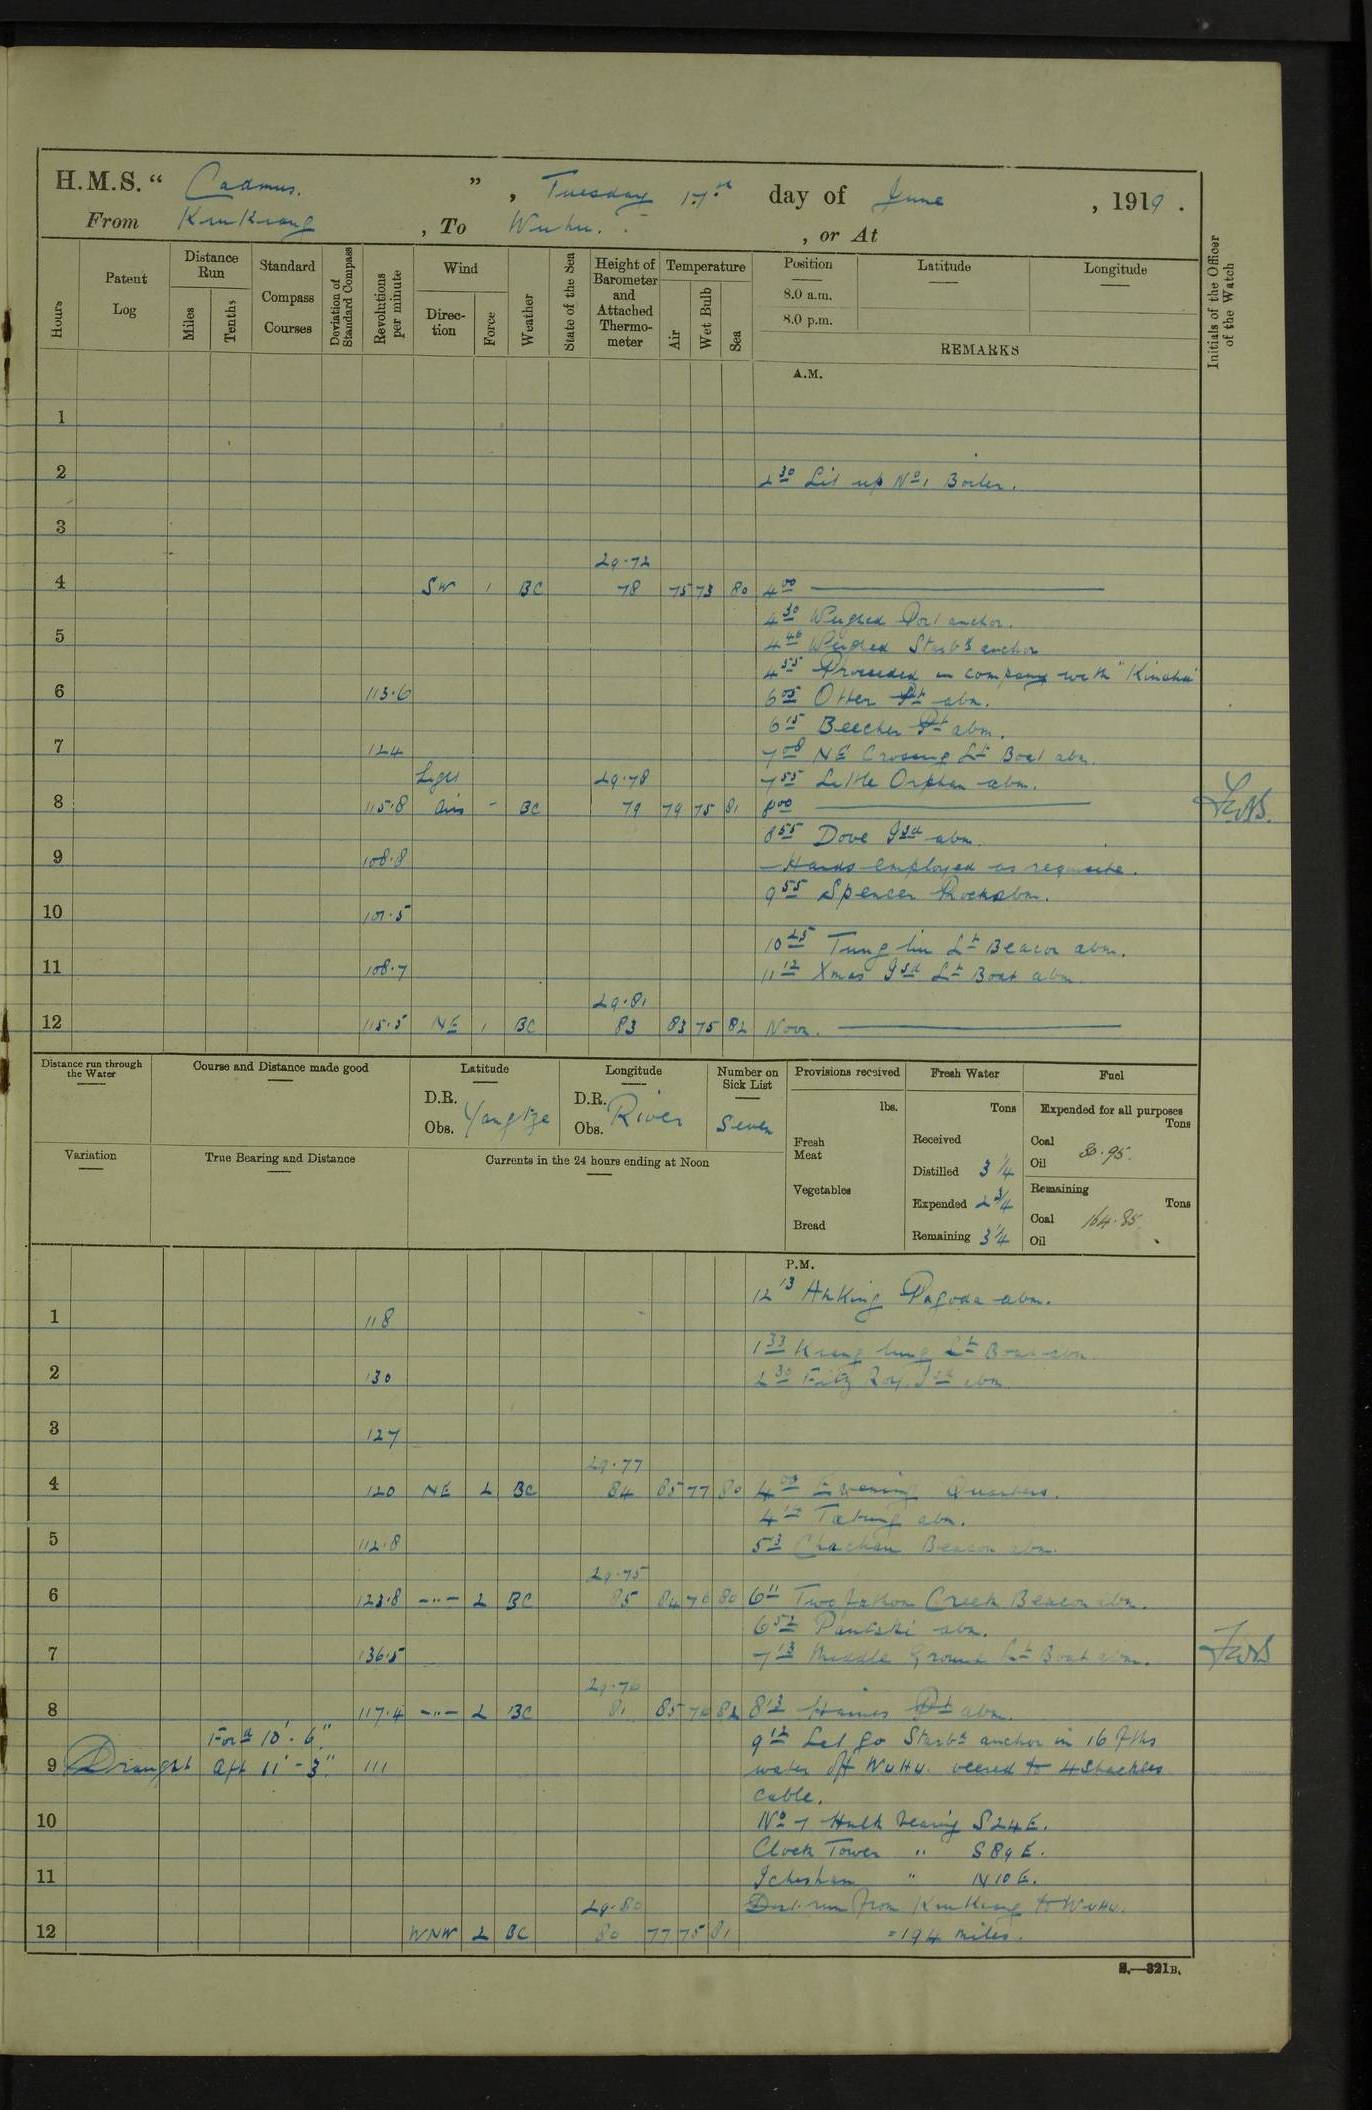 H.M.S. “ Cadmus. ” , Tuesday 17th day of June , 1919 .
From KiuKiang , To Wuhu. , or At
Hours
Patent Log
Distance Run
Miles
Tenths
Standard Compass Courses
Deviation of Standard Compass
Revolutions per minute
Wind
Direction
Force
Weather
State of the Sea
Height of Barometer and Attached Thermometer
Temperature
Air
Wet Bulb
Sea
Position
8.0 a.m.
8.0 p.m.
Latitude
Longitude
REMARKS
Initials of the Officer of the Watch
A.M.
1
2
2 30 Lit up No 1 Boiler.
3
29.72
4 SW 1 BC 78 75 73 80 4 00
4 30 Weighed Port anchor.
5 4 46 Weighed Starbd anchor
4 55 Proceeded in company with "Kinsha"
6 113.6 6 05 Otter Pt abm.
6 15 Beecher Pt abm.
7 124 7 08 NE Crossing Lt Boat abm.
Light 29.78 7 55 Little Orphan abm.
8 115.8 airs - BC 79 79 75 81 8 00
8 55 Dove Isd abm.
9 108.8 Hands employed as requisite.
9 55 Spencer Rocks abm.
10 107.5
10 25 Tung liu Lt Beacon abm.
11 108.7 11 12 Xmas Isd Lt Boat abm.
29.81
12 115.5 NE 1 BC 83 83 75 82 Noon.
Distance run through the Water
Course and Distance made good
Latitude
D.R.
Obs. Yangtze
Longitude
D.R. River
Obs.
Number on Sick List
Seven
Provisions received
lbs.
Fresh Meat
Vegetables
Bread
Fresh Water
Tons
Received
Distilled 3 1/4
Expended 2 3/4
Remaining 3 1/4
Fuel
Expended for all purposes
Tons
Coal
Oil
Remaining
Tons
Coal 164.85
Oil
Variation
True Bearing and Distance
Currents in the 24 hours ending at Noon
P.M.
12 13 AnKing Pagoda abm.
1 118
1 33 Kiang lung Lt Boat abm.
2 130 2 30 Fitz Roy Isd abm.
3 127
29.77
4 120 NE 2 BC 84 85 77 80 4 00 Evening Quarters.
Tatung abm.
5 112.8 Beacon abm.
29.75
6 122.8 -"- 2 BC 85 84 76 80 6 11 Two fathom Creek Beacon abm.
6 52 abm.
7 136.5 7 13 Middle Ground Lt Boat abm.
29.76
8 117.4 -"- 2 BC 81 85 76 82 8 13 Haines Pt abm.
Ford 10' - 6" 9 12 Let go Starbd anchor in 16 fths
9 Draught Aft 11' - 3" 111 water off WuHu. veered to 4 Shackles
cable.
10 No 7 Hulk bearing S24E.
Clock Tower " S89E.
11 Icheshan " N10E.
29.80 Dist. run from KiuKiang to WuHu.
12 WNW 2 BC 80 77 75 81 = 194 miles.
S.—321B.